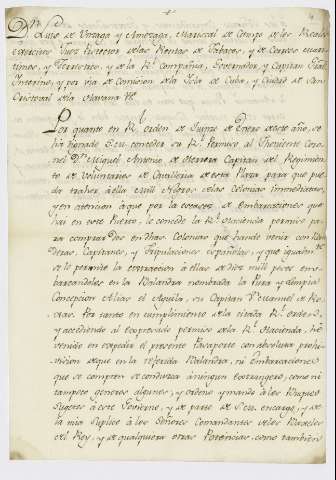 Dn. Luis de Unzaga y Amezaga, Mariscal de Campo de los Reales
exercitos Juez Protector de las Rentas de Tabacos, y de Correos
timos, y Terrestres, y de la Rl. Compañia, Governador, y Capitan Gral
Interino, y por via de Comision de la Isla de Cuba, y Ciudad de San
Cristoval de la Havana &a.
Por quanto en Rl. orden de de Enero de este año, se
ha dignado S.M. conceder su Rl. Permiso al Theniente Coro-
nel Dn. Miguel Antonio de Herrera Capitan del Regimiento
de Voluntarios de Cavalleria de esta Plaza para que pue-
da traher à ella mill Negros de las Colonias immediatas,
y en atencion à que por la de Embarcaciones que
hai en este Puerto, le concede la Rl. Hacienda permiso pa-
ra comprar dos en dhas. Colonias que han de venir con
deras, Capitanes, y Tripulaciones españolas, y que igualmte.
se le permite la extraccion à ellas de diez mill pesos em-
barcandolos en la Balandra nombrada la Pura y Limpia
Concepcion Alias el Aguila, su Capitan Dn. Manuel de
Por tanto en cumplimiento de la citada Rl. orden,
y accediendo al expresado permiso de la Rl. Hacienda, he
venido en expedir el presente Pasaporte con absoluta prohi-
vicion de que en la referida Balandra, ni Embarcaciones
que se compren se conduzca à ningun extrangero, como ni
tampoco generos algunos, y ordeno y mando à los
Sugetos à este Govierno, y de parte de S.M. encargo, y de
la mia Suplico à los Señores Comandantes de los Baxeles
del Rey, y de qualquiera otras Potencias, como tambien